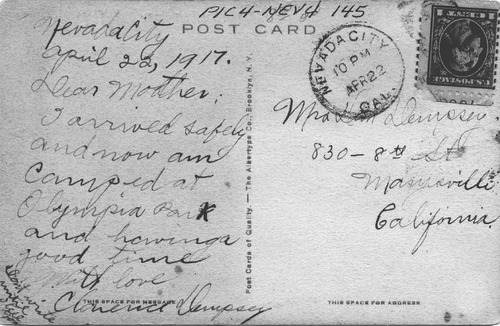 PIC4-NEV4 145
POST CARD
Nevada City
April 22, 1917.
Dear Mother;
I arrived safely
and now am
camped at
Olympia Park
and having a
good time
With love
Clarence Dempsey
THIS SPACE FOR MESSAGE
Post Cards of Quality. — The Albertype Co., Brooklyn, N.Y.
NEVADA CITY
10 PM
APR 22
CAL.
U.S. POSTAGE
Mrs Dempsey
830-8th St
Marysville
California
THIS SPACE FOR ADDRESS